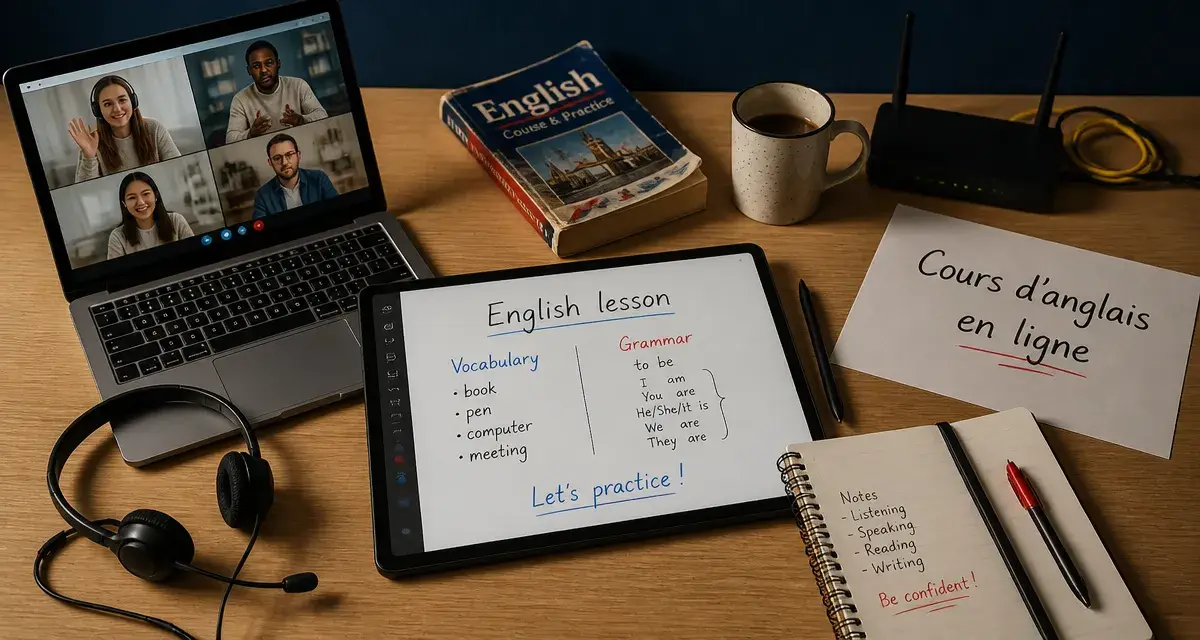 English
Course & Practice
Cours d'anglais
en ligne
English lesson
Vocabulary
• book
• pen
• computer
• meeting
Grammar
to be
I am
You are
He/She/it is
We are
They are
Let's practice!
Notes
- Listening
- Speaking
- Reading
- Writing
Be confident!